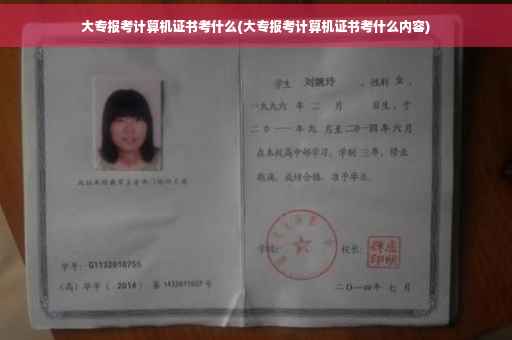 大专报考计算机证书考什么(大专报考计算机证书考什么内容)
学生 刘婉玲 ，性别 女 ，
一九九六 年 二 月 日生，于
二〇一一 年 九 月至 二〇一四 年 六 月
在本校高中部学习，学制 三 年，修业
期满，成绩合格，准予毕业。
学号：G1132010755
(高) 毕字 ( 2014 ) 第 号
学校：
校长：
二〇一四年 七 月